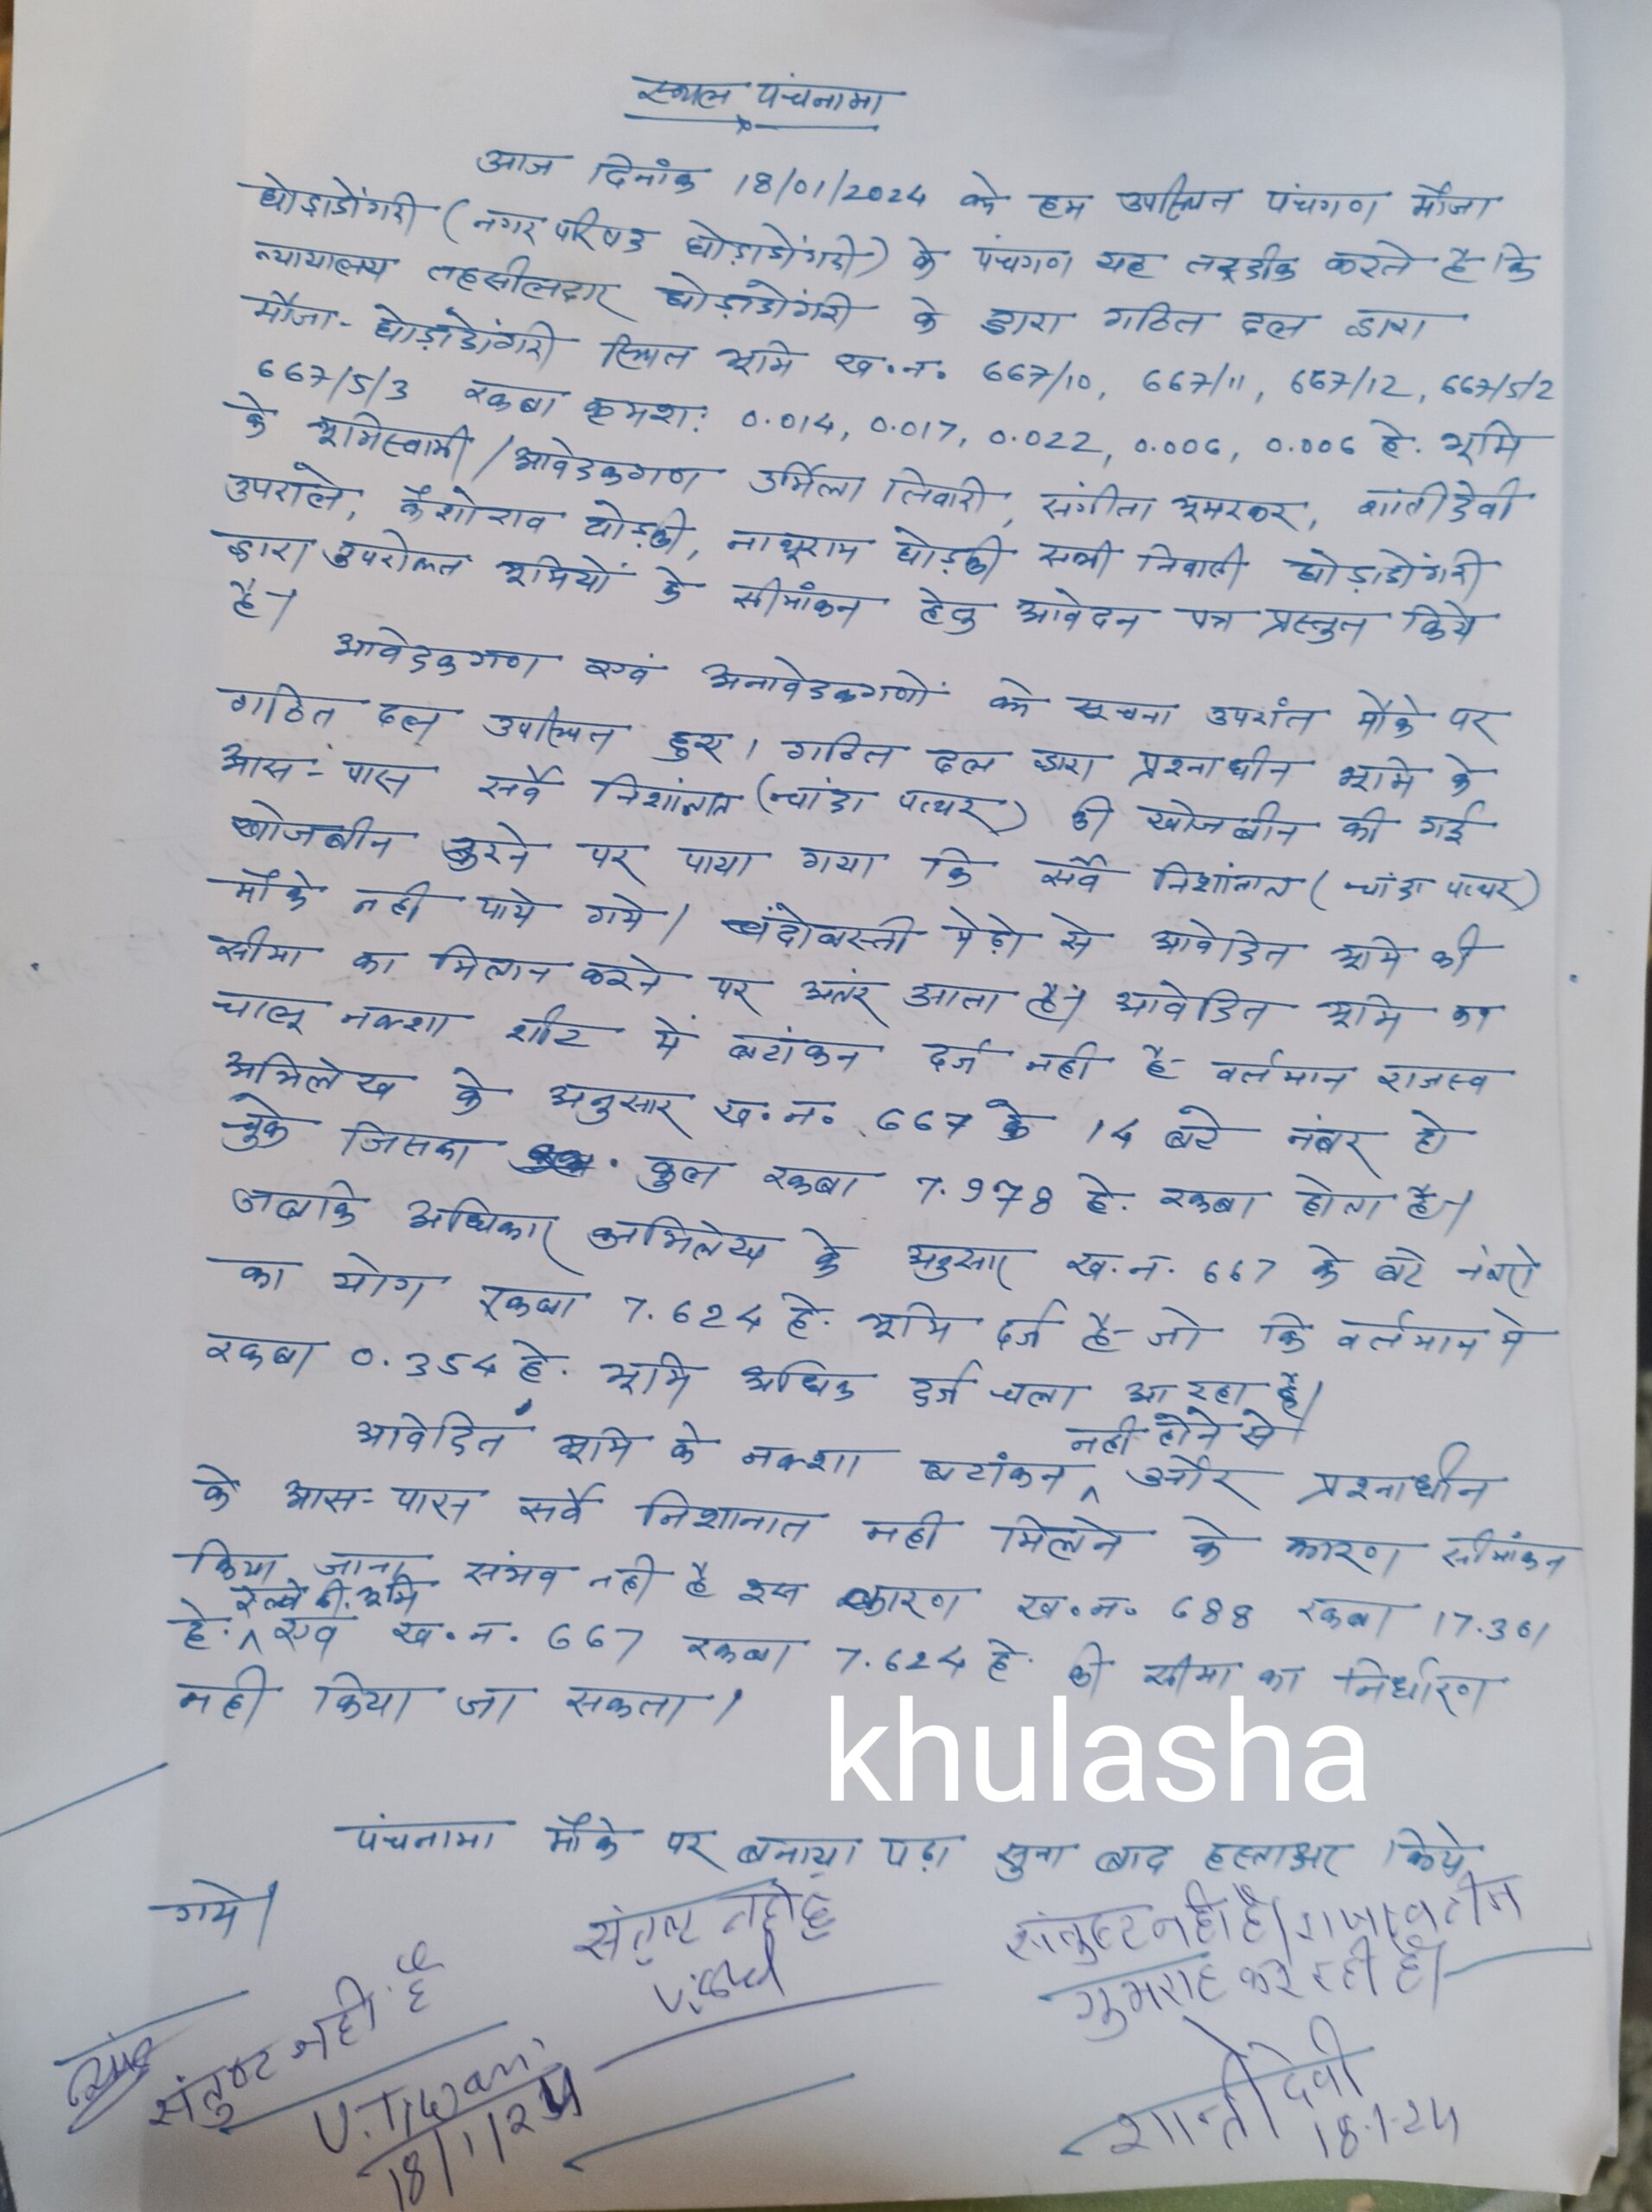 स्थल पंचनामा
आज दिनांक 18/01/2024 को हम उपस्थित पंचगण मौजा
घोड़ाडोंगरी (नगर परिषद घोड़ाडोंगरी) के पंचगण यह तस्दीक करते है कि
न्यायालय तहसीलदार घोड़ाडोंगरी के द्वारा गठित दल द्वारा
मौजा- घोड़ाडोंगरी स्थित भूमि ख.न. 667/10, 667/11, 667/12, 667/5/2
667/5/3 रकबा क्रमश: 0.014, 0.017, 0.022, 0.006, 0.006 हे. भूमि
के भूमिस्वामी/आवेदकगण उर्मिला तिवारी, संगीता भूमरकर, शांतीदेवी
उपराले, कैशोराव घोड़की, नाथूराम घोड़की सभी निवासी घोड़ाडोंगरी
द्वारा उपरोक्त भूमियों के सीमांकन हेतु आवेदन पत्र प्रस्तुत किये
है।
आवेदकगण एवं अनावेदकगणों को सूचना उपरांत मौके पर
गठित दल उपस्थित हुए। गठित दल द्वारा प्रश्नाधीन भूमि के
आस-पास सर्वे निशांनात (चांदा पत्थर) की खोजबीन की गई
खोजबीन करने पर पाया गया कि सर्वे निशांनात (चांदा पत्थर)
मौके नही पाये गये। बंदोबस्ती मेढ़ो से आवेदित भूमि की
सीमा का मिलान करने पर अतंर आता है। आवेदित भूमि का
चालू नक्शा शीट में बटांकन दर्ज नही है- वर्तमान राजस्व
अभिलेख के अनुसार ख.न. 667 के 14 बटे नंबर हो
चुके जिसका कुल रकबा 7.978 हे. रकबा होता है।
जबकि अधिकार अभिलेख के अनुसार ख.न. 667 के बटे नंबरो
का योग रकबा 7.624 हे. भूमि दर्ज है- जो कि वर्तमान मे
रकबा 0.354 हे. भूमि अधिक दर्ज चला आ रहा है।
आवेदित भूमि के नक्शा बटांकन नही होने से और प्रश्नाधीन
के आस-पास सर्वे निशानात नही मिलने के कारण सीमांकन
किया जाना संभव नही है इस कारण ख.न. 688 रकबा 17.361
हे. रेल्वे की भूमि एवं ख.न. 667 रकबा 7.624 हे. की सीमा का निर्धारण
नही किया जा सकता।
khulasha
पंचनामा मौके पर बनाया पढ़ा सुना बाद हस्ताक्षर किये
गये।
संतुष्ट नही है
संतुष्ट नही है।
गुमराह कर रही है।
संतुष्ट नही है
U.Tiwari
18/1/24
शान्ती देवी
18-1-24